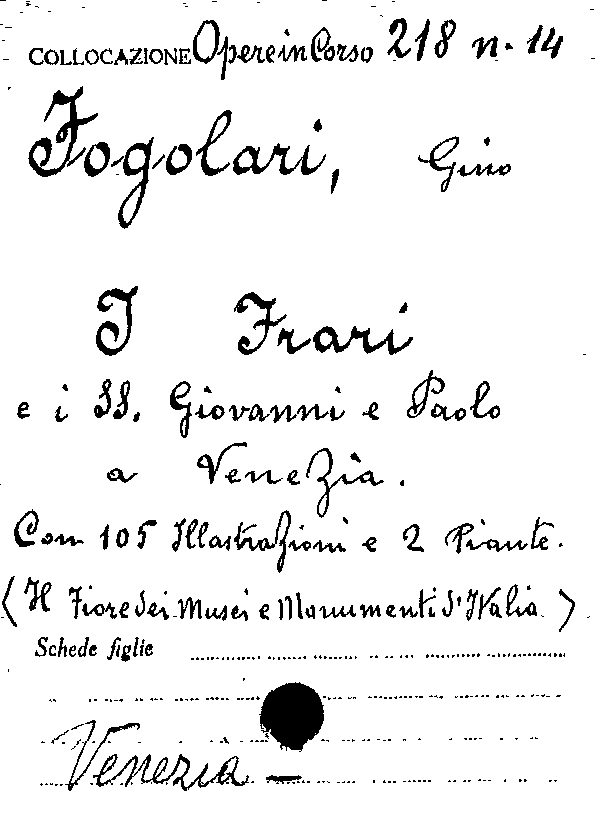 COLLOCAZIONE Opere in Corso 218 n. 14
Fogolari, Gino
I Frari
e i SS. Giovanni e Paolo
a Venezia.
Con 105 Illustrazioni e 2 Piante.
(Il Fiore dei Musei e Monumenti d'Italia)
Schede figlie
Venezia —